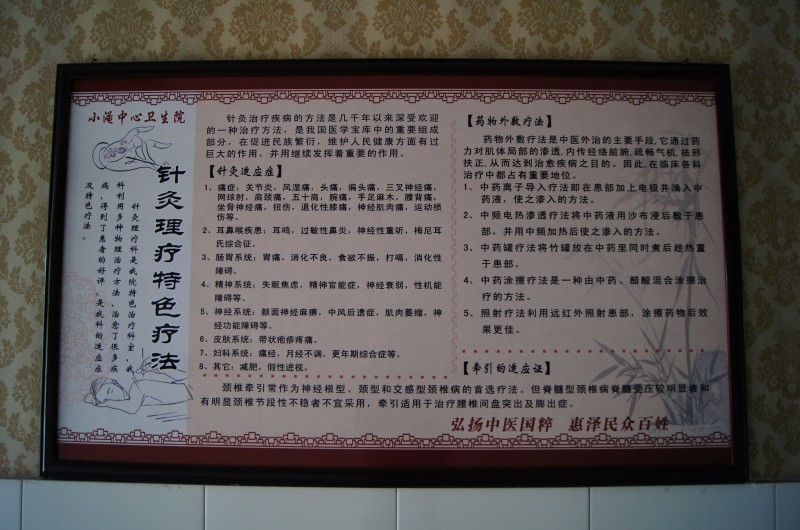 小湎中心卫生院
针灸理疗特色疗法
针灸理疗科是我院特色治疗科室,我
科利用多种物理治疗方法,治愈了很多疾
病,得到了患者的好评,是我科的适应症
及特色疗法。
针灸治疗疾病的方法是几千年以来深受欢迎
的一种治疗方法,是我国医学宝库中的重要组成
部分,在促进民族繁衍,维护人民健康方面有过
巨大的作用,并用继续发挥着重要的作用。
【针灸适应症】
1、痛症:关节炎,风湿痛,头痛,偏头痛,三叉神经痛,
网球肘,肩颈痛,五十肩,腕痛,手足麻木,腰背痛,
坐骨神经痛,扭伤,退化性膝痛,神经肌肉痛,运动损
伤等。
2、耳鼻喉疾患:耳鸣,过敏性鼻炎,神经性重听,梅尼耳
氏综合征。
3、肠胃系统:胃痛,消化不良,食欲不振,打嗝,消化性
障碍。
4、精神系统:失眠焦虑,精神官能症,神经衰弱,性机能
障碍等。
5、神经系统:颜面神经麻痹,中风后遗症,肌肉萎缩,神
经功能障碍等。
6、皮肤系统:带状疱疹疼痛。
7、妇科系统:痛经,月经不调,更年期综合症等。
8、其它:减肥,假性进视。
【药物外敷疗法】
药物外敷疗法是中医外治的主要手段,它通过药
力对肌体局部的渗透,内传经络脏腑,疏畅气机,祛邪
扶正,从而达到治愈疾病之目的。因此,在临床各科
治疗中都占有重要地位。
1、中药离子导入疗法即在患部加上电极并滴入中
药液,使之渗入的方法。
2、中频电热渗透疗法将中药液用沙布浸后敷于患
部,并用中频加热后使之渗入的方法。
3、中药罐疗法将竹罐放在中药里同时煮后趁热置
于患部。
4、中药涂擦疗法是一种由中药、醋酸混合涂擦治
疗的方法。
5、照射疗法利用远红外照射患部,涂擦药物后效
果更佳。
【牵引的适应证】
颈椎牵引常作为神经根型、颈型和交感型颈椎病的首选疗法。但脊髓型颈椎病脊髓受压较明显者和
有明显颈椎节段性不稳者不宜采用,牵引适用于治疗腰椎间盘突出及膨出症。
弘扬中医国粹 惠泽民众百姓